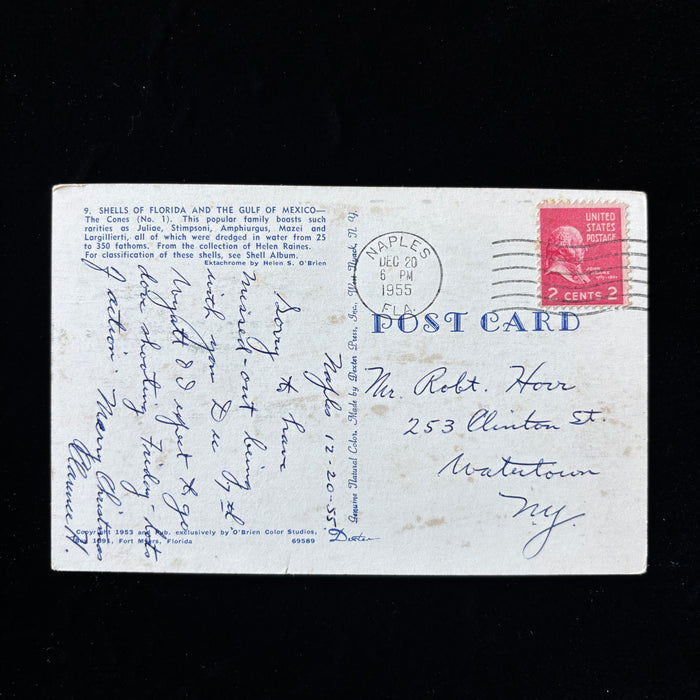 9. SHELLS OF FLORIDA AND THE GULF OF MEXICO—
The Cones (No. 1). This popular family boasts such
rarities as Juliae, Stimpsoni, Amphiurgus, Mazei and
Largillierti, all of which were dredged in water from 25
to 350 fathoms. From the collection of Helen Raines.
For classification of these shells, see Shell Album.
Ektachrome by Helen S. O'Brien
Naples 12-20-55
Sorry to have
missed out being
with you Dec
Wyatt & I expect to go
dove shooting Friday - lots
of action. Merry Christmas
Copyright 1953 and Pub. exclusively by O'Brien Color Studios,
1091, Fort Myers, Florida
69589
Genuine Natural Color. Made by Dexter Press, Inc., West Nyack, N. Y.
Dexter
NAPLES
DEC 20
6 PM
1955
FLA.
UNITED
STATES
POSTAGE
JOHN
ADAMS
2 CENTS 2
POST CARD
Mr. Robt. Horr
253 Clinton St.
Watertown
N.Y.